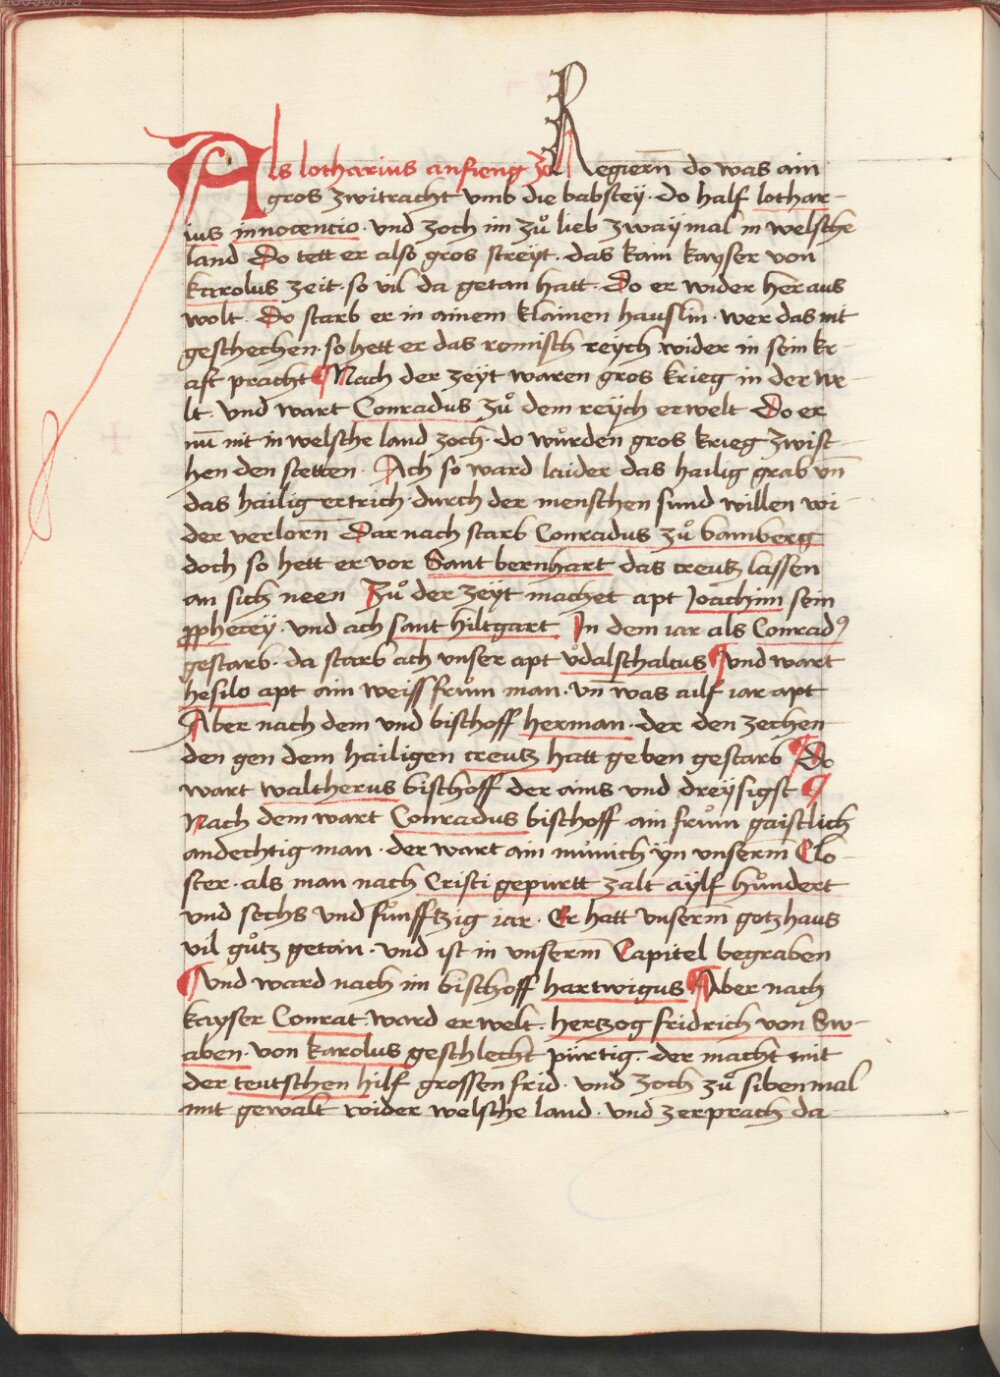 Als lotharius anfieng zů Regiern̄ do was ain
gros zwitracht vmb die babstey · do half lothar-
ius innocencio · vnd zoch im zů lieb zwaymal in welsche
land Do tett er also gros streyt · das kain kayser von
karolus zeit · so vil da getan hatt · Do er wider her aus
wolt · Do starb er in ainem klainen hauslin · wer das nit
geschechen · so hett er das romisch reych wider in sein kr-
aft pracht Nach der zeyt waren gros krieg in der we-
lt · vnd wart Conradus zů dem reych erwelt Do er
nū nit in welsche land zoch · do wůrden gros krieg zwist-
hen den stetten · Ach so ward laider das hailig grab vn̄
das hailig ertrich · durch der menschen sund willen wi-
der verlorn̄ Dar nach starb Conradus zů bamberg
doch so hett er vor Sant bernhart das creutz lassen
an sich neen Zů der zeyt machet apt Joachim sein
ꝓphecey · vnd ach sant hiltgart In dem iar als Conradꝰ
gestarb · da starb ach vnser apt vͦdalschalcus vnd wart
hesilo apt ain weiss frům man · vn̄ was ailf iar apt
Aber nach dem vnd bischoff herman · der den zechen-
den gen dem hailigen creutz hatt geben gestarb Do
wart waltherus bischoff der ains vnd dreysigst
Nach dem wart Conradus bischoff ain frům gaistlich
andechtig man · der wart ain můnich yn vnserm̄ Clo-
ster · als man nach Cristi gepurtt zalt aylf hůndert
vnd sechs vnd fůnfftzig iar · Er hatt vnserm̄ gotzhaus
vil gůtz getan · vnd ist in vnserm̄ Capitel begraben
vnd ward nach im bischoff hartwigus Aber nach
kayser Conrat · ward erwelt · hertzog fridrich von Sw-
aben · von karolus geschlecht pürtig · der macht mit
der teutschen hilf grossen frid · vnd zoch zů siben mal
mit gewalt wider welsche land · vnd zerprach da